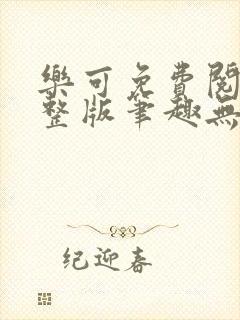 樂可免費閱
整版筆趣無
纪迎春